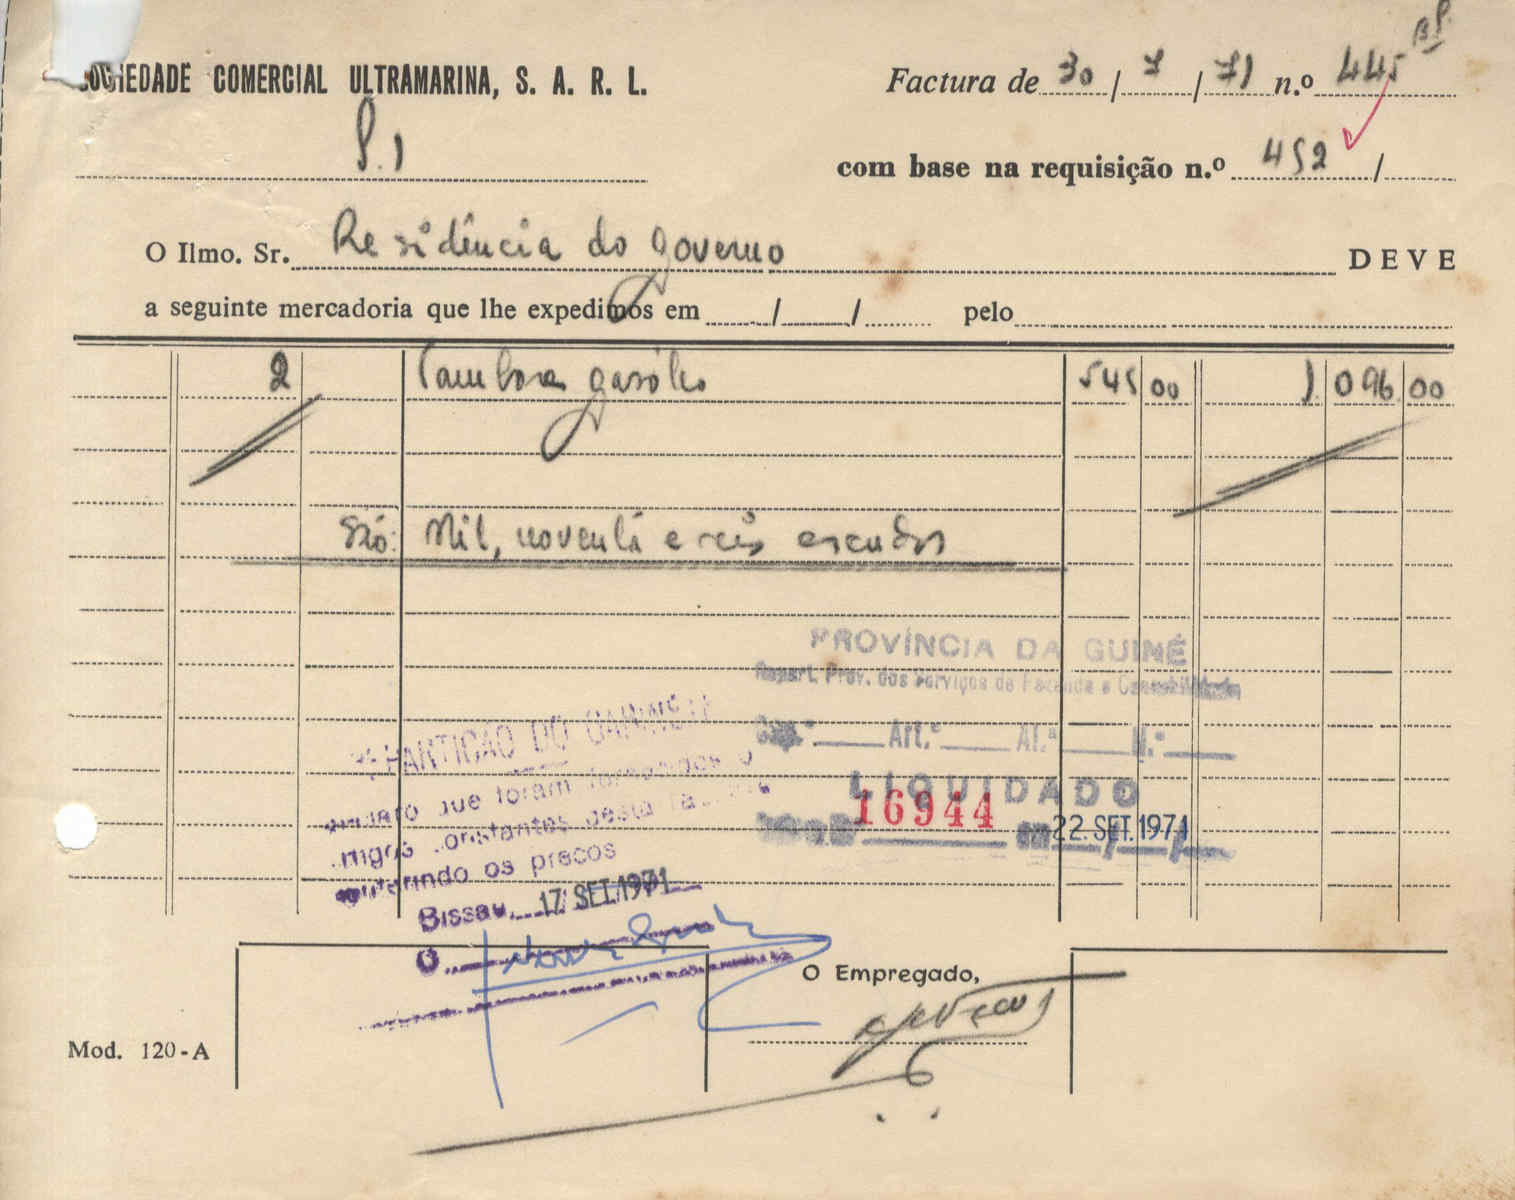 SOCIEDADE COMERCIAL ULTRAMARINA, S. A. R. L.
Factura de 30 / 7 / 71 n.º 445
com base na requisição n.º 452 /
O Ilmo. Sr. Residência do governo DEVE
a seguinte mercadoria que lhe expedimos em / / pelo
2 Tambores gasóleo 545 00 1.096 00
São: Mil, noventa e seis escudos
PROVÍNCIA DA GUINÉ
Repart. Prov. dos Serviços de Fazenda e Contabilidade
Cap.º Art.º Al.ª N.º
LIQUIDADO
16944 em 22. SET. 1971
REPARTIÇÃO DO GABINETE
que foram fornecidos o
artigos constantes desta factura
os preços
Bissau, 17 SET. 1971
O
O Empregado,
Mod. 120-A